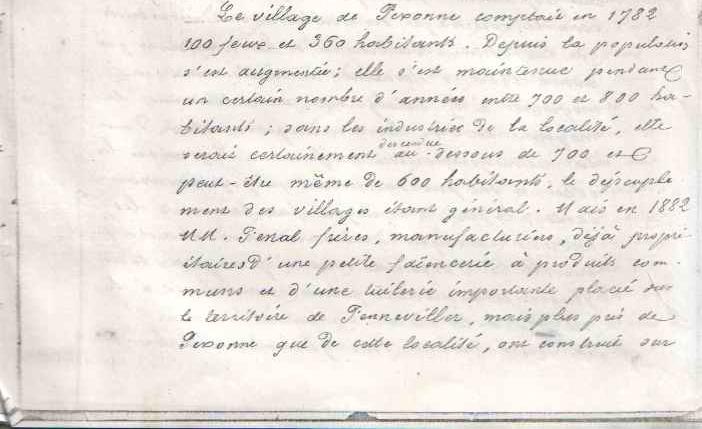 Le village de Pexonne comptait en 1782
100 feux et 360 habitants. Depuis la population
s'est augmentée; elle s'est maintenue pendant
un certain nombre d'années entre 700 et 800 ha-
bitants; sans les industries de la localité, elle
serait certainement descendue au-dessous de 700 et
peut-être même de 600 habitants, le dépeuple-
ment des villages étant général. Mais en 1882
MM. Fenal frères, manufacturiers, déjà propri-
étaires d'une petite faïencerie à produits com-
muns et d'une tuilerie importante placée sur
le territoire de Fenneviller, mais plus près de
Pexonne que de cette localité, ont construit sur